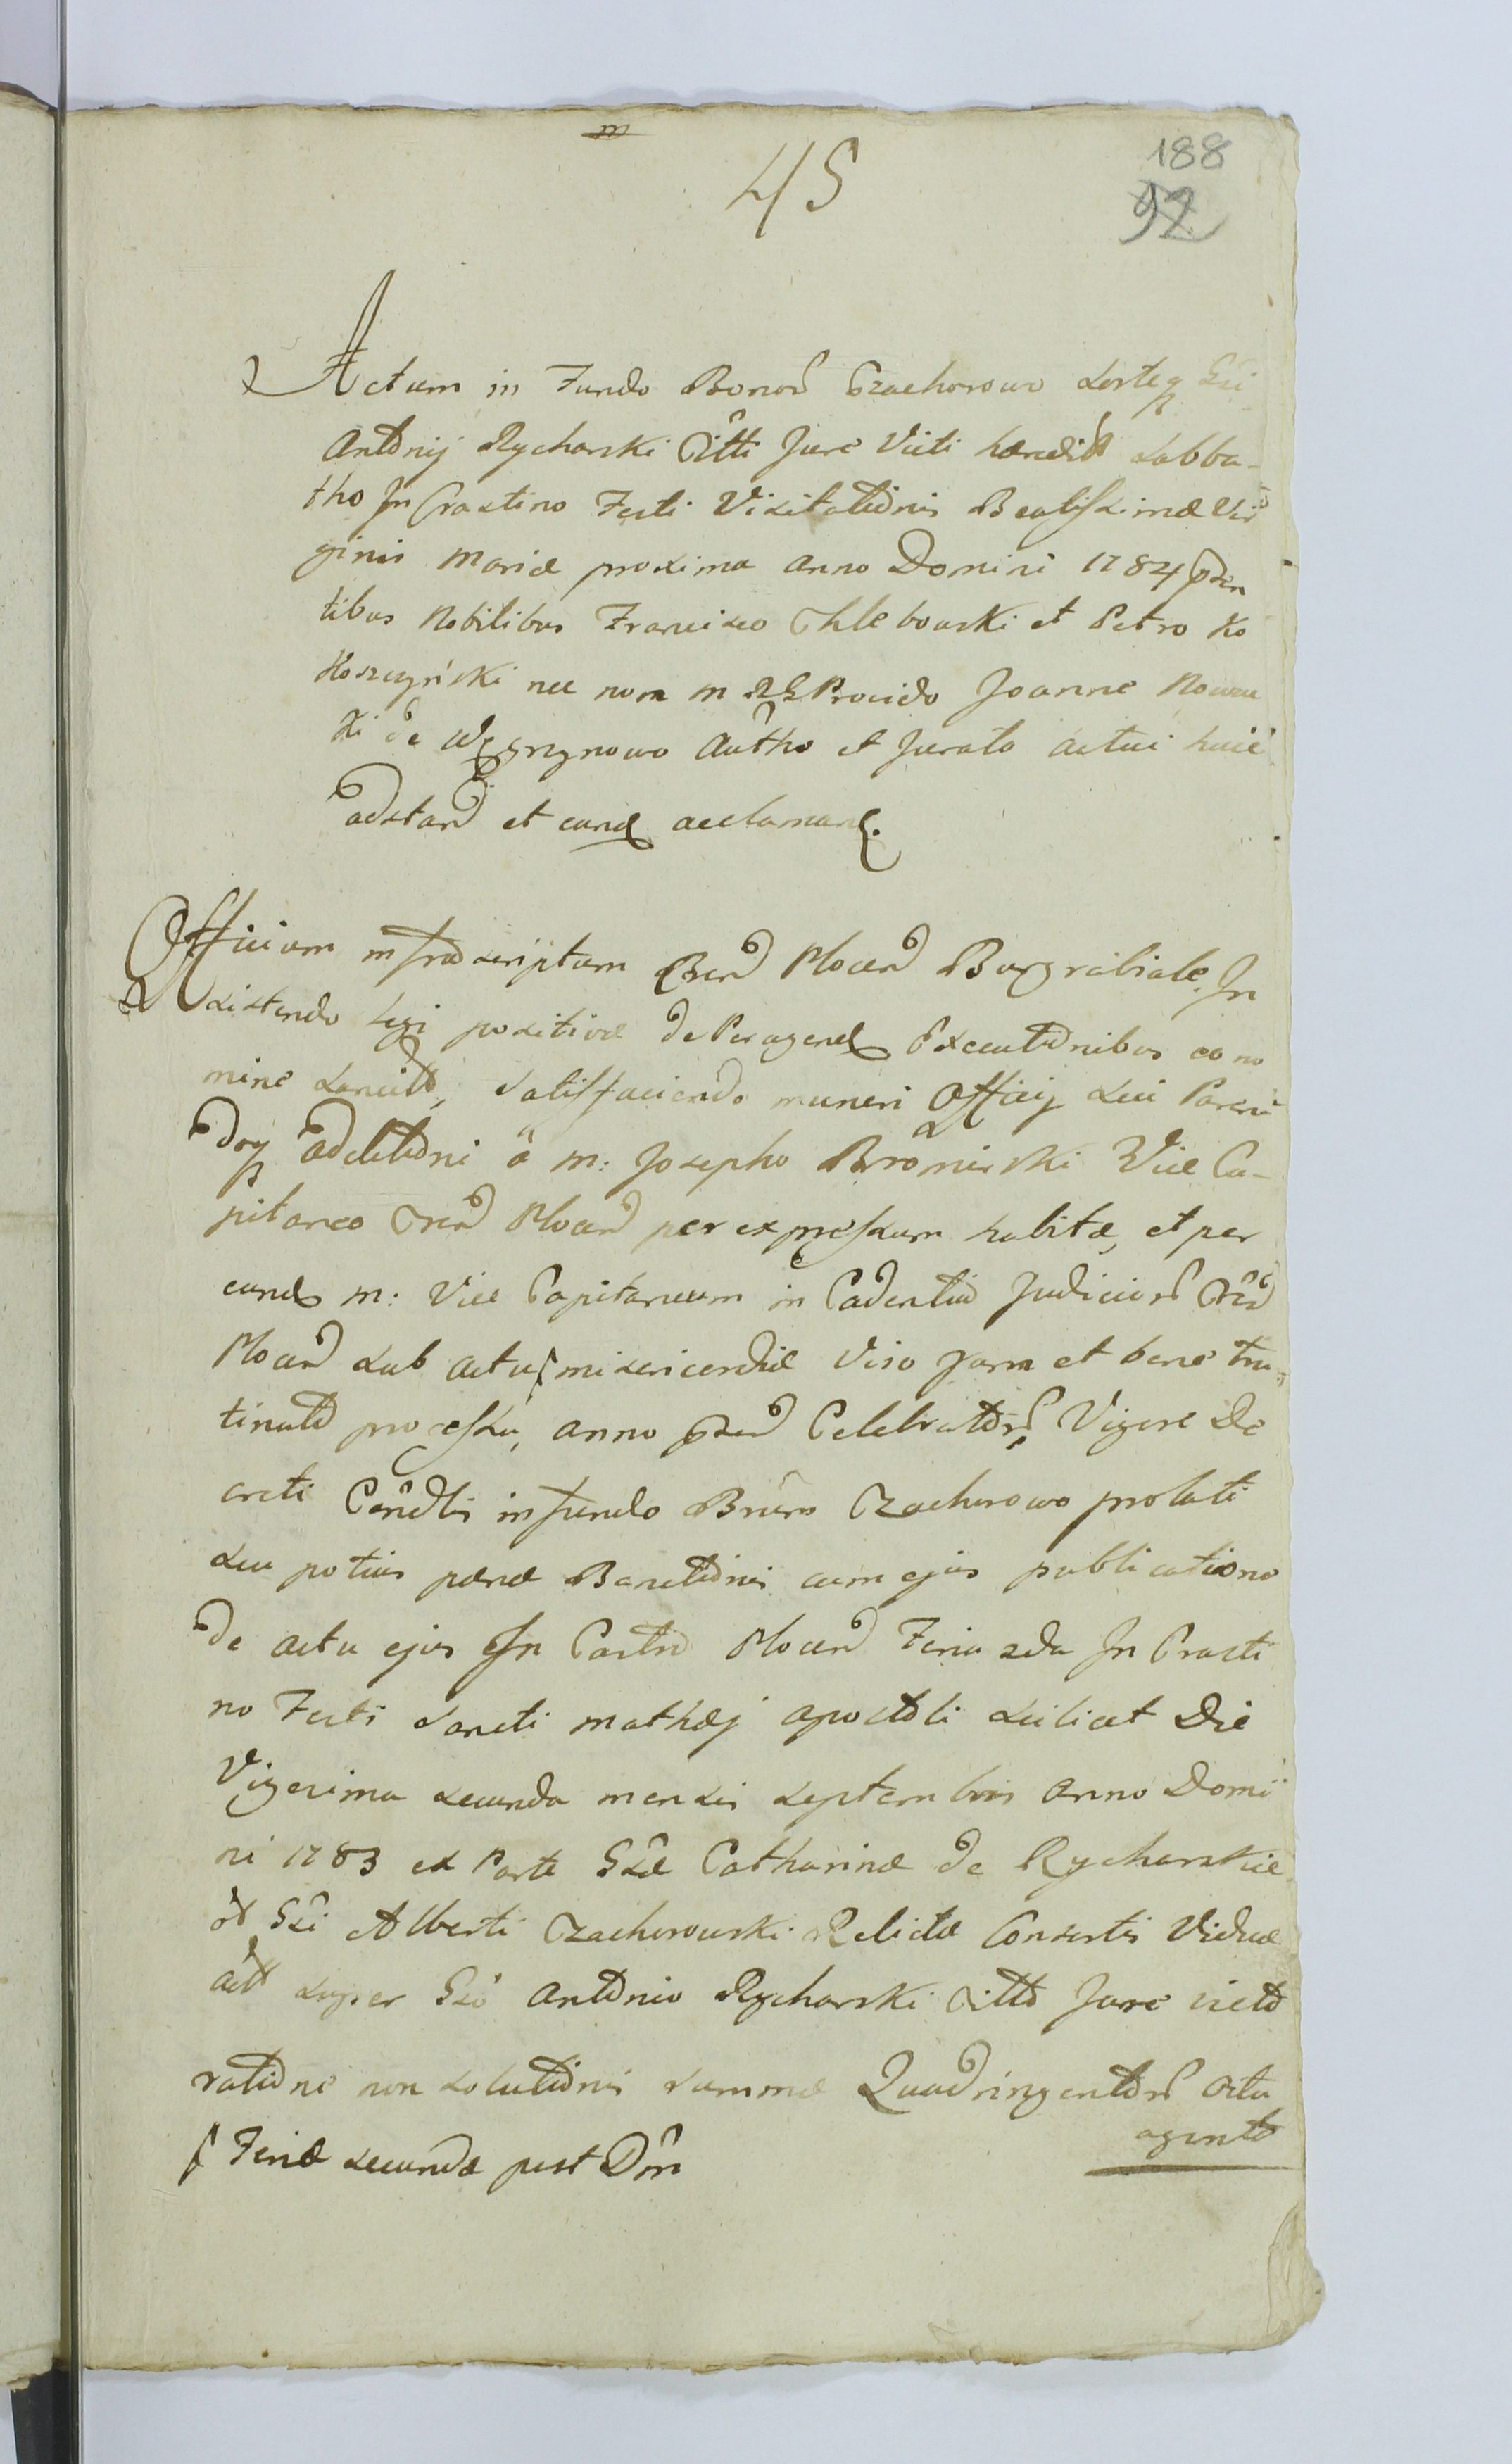 m
45
188
92
Actum in Fundo Bonor Czachorowo Sorteq Gsi
Antonij Rycharski Citti Jure Victi hæredit Sabba-
tho In Crastino Festi Visitationis Beatissimæ Vir
ginis Mariæ proxima Anno Domini 1784 psen
tibus Nobilibus Francisco Chlebowski et Petro Ko
koszczyński nec non M RG Provido Joanne Nowa
ki de Węgrzynowo Autho et Jurato actui huic
adstand et eund acclamand.
Officium infrascriptum Cren Plocen Burgrabiale In
sistendo Legi positivæ de Peragend Executionibus eo no
mine sancito, satisfaciendo muneri Officij sui Paren
doq adcitationi a M: Josepho Bromirski Vice Ca-
pitaneo Cren Plocen per expressum habitæ, et per
eund M: Vice Capitaneum in Cadentia Judicior Cren
Plocen sub actu ſ misericordiæ Viso Jam et bene tru
tinato processu, anno psen Celebrator, Vigore De
creti Condlis in fundo Bnorum Czachorowo prolati
seu potius pænæ Bannitionis cum ejus publicatione
de actu ejus In Castro Plocen Feria 2da In Crasti
no Festi Sancti Mathæj Apostoli scilicet Die
Vigesima secunda mensis Septembris Anno Domi
ni 1783 ex Parte Gsæ Catharinæ de Rycharskie
ot Gsi Alberti Czachorowski Relictæ Consortis Viduæ
act super Gso Antonio Rycharski Citto Jure victo
ratione non solutionis summæ Quadringentor Octu
agint
ſ Feriæ secundæ post Dm